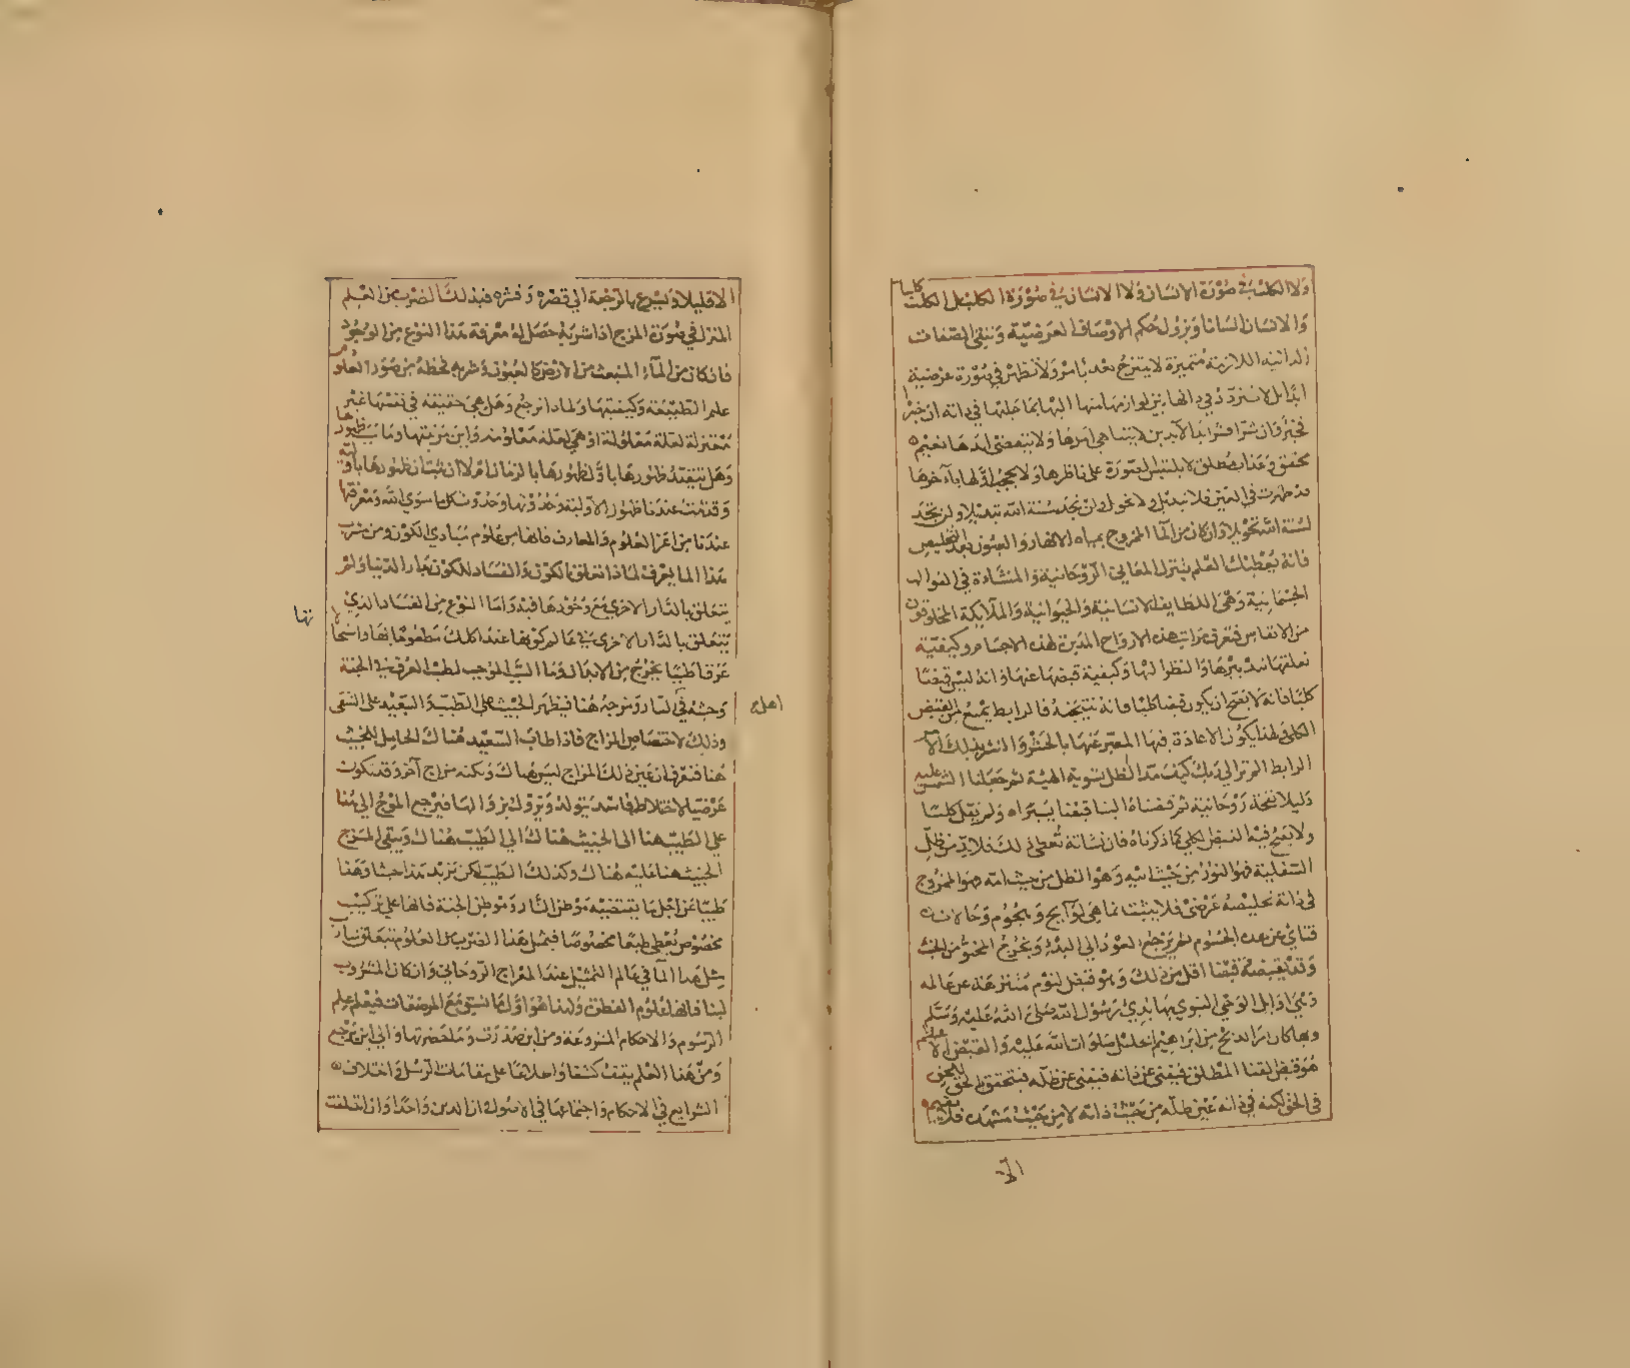 ولا الكلب في صورة الانسان ولا الانسان في صورة الكلب بل الكلب كلبا
والانسان انسانا ويزول حكم الاوصاف العرضية وتبقى الصفات
الذاتية اللازمة متميزة لا يمتزج بعد بامر ولا تظهر في صورة عرضية
ابدا بل لا تتردد في ذاتها بين لوازمها منها اليها بما جلبها في ذاته ان خيرا
فخير وان شرا فشر ابد الآبدين لا يتناهى امرها ولا ينقضي ابدها نعيم
محقق وعذاب مطلق لا يلتبس لصورة على ناظرها ولا يحجب اولها بآخرها
قد ظهرت في العين فلا تبديل ولا تحويل ولن تجد لسنة الله تبديلا ولن تجد
لسنة الله تحويلا وان كان من الماء الممزوج بمياه الانهار والعيون بعد التخليص
فانه يعطيك العلم بتنزل المعاني الروحانية والمنشاءة في القوالب
الجسمانية وهي اللطايف الانسانية والحيوانية والملائكة المخلوقون
من الانفاس فتعرف مراتب هذه الارواح المدبرة لهذه الاجسام وكيفية
تعلقها بتدبيرها والنظر اليها وكيفية قبضها عنها وانه ليس قبضا
كليا فانه لا يصح ان يكون قبضا كليا فانه نتيجة فالرابط يمنع من القبض
الكلي ولهذا يكون الاعادة فيها المعبر عنها بالحشر والنشر بذلك الامر
الرابط الم تر الى ربك كيف مد الظل تسوية الهية ثم جعلنا الشمس عليه
دليلا نفخة روحانية ثم قبضناه الينا قبضا يسيرا ولم يقل كليا
ولا يصح فيه القبض الكلي كما ذكرناه فان نشاته تعطي ذلك فلا بد من ظل
السفلية فهو النور من حيث ابيه وهو الظل من حيث امه فهو الممزوج
في ذاته تخليصه عرضي فلا يثبت انما هي لوايح ونجوم وحالات
فتاي عن هذه الجسوم ثم يرجع العود الى البدء ويخرج المخبو من الخبء
وقد يقبضه قبضا اقل من ذلك وهو قبض لنوم منتزعة عن عالمه
وبها اوايل الوحي النبوي بها بدئ رسول الله صلى الله عليه وسلم
وبها كان من الذبح من ابراهيم الخليل صلوات الله عليه والقبض الاعظم
هو قبض لفنا المطلق فيفنى عن ذاته فيفنى عن ظله فيتحقق الحق بالحق
في الحق لكنه في ذاته عين ظله من حيث ذاته لا من حيث مشهده فلا يقيم
الا
الا قليلا ويسرع بالرجعة الى قصره وقشره فبذلك الضرب من العلم
المنزل في صورة المزج اذا شربته حصل له معرفة هذا النوع من الوجود
فان كان من الماء المنبعث من الارض كالعيون وشربه لحظه من صور العلوم
علم الطبيعة وكيفيتها ولماذا ترجع وهل هي حقيقة في نفسها غير
مفتقرة لعلة معلولة او هي لعلة معلومة واين مرتبتها وما سبب ظهورها
وهل يتقيد ظهورها باول لظهورها بالزمان ام لا ان ثبت ان ظهورها باولية
وقد ثبت عندنا ظهور الاولية وحدوثها وحدوث كل ما سوى الله ومعرفتها
عندنا من اعز العلوم والمعارف فانها من علوم مبادي الكون ومن شرب
هذا الما يعرف لماذا تعلق الكون والفساد للكون بدار الدنيا ولم
يتعلق بالدار الاخرى مع وجودها فيه واما النوع من الفساد الذي
يتعلق بالدار الاخرى في عالم كونها عند اكلك مطعوماتها واستحالاتها
عرقا طيبا يخرج من الابدان وما السبب الموجب لطيب العرق في الجنة
وخبثه في النار ومزجه هنا فيظهر الخبيث على الطيب والسعيد على الشقي
وذلك لاختصاص المزاج فاذا طاب السعيد هناك الحامل للخبيث
هنا فتعرف ان عين ذلك المزاج ليس هناك ولكنه مزاج آخر وقد تكون
عرضيا لاختلاط فاسد يتولد ويزول بزوالها فيرجع المزج الى هنا
على الطيب هنا الى الخبيث هناك الى الطيب هناك ويبقى المزج
الخبيث هنا عليه هناك وكذلك الطيب لكن يزيد هذا خبثا وهذا
طيبا من اجل ما يقتضيه موطن النار وموطن الجنة فانها على تركيب
مخصوص يعطي طبعا مخصوصا فبمثل هذا الضرب من العلوم يتعلق شارب
مثل هذا الما في عالم التمثيل عند المعراج الروحاني وان كان المشروب
لبنا فانها علوم الفطرة ولهذا هو اول ما نسقى مع المرضعات فيعلم علم
الرسوم والاحكام المشروعة ومن اين صدرت وما حضرتها والى اين ترجع
ومن هنا العلم يقف كشفا واحدا عا على مقامات الرسل واختلاف
الشرايع في الاحكام واجتماعها في الاصول وان الدين واحد وان اختلفت